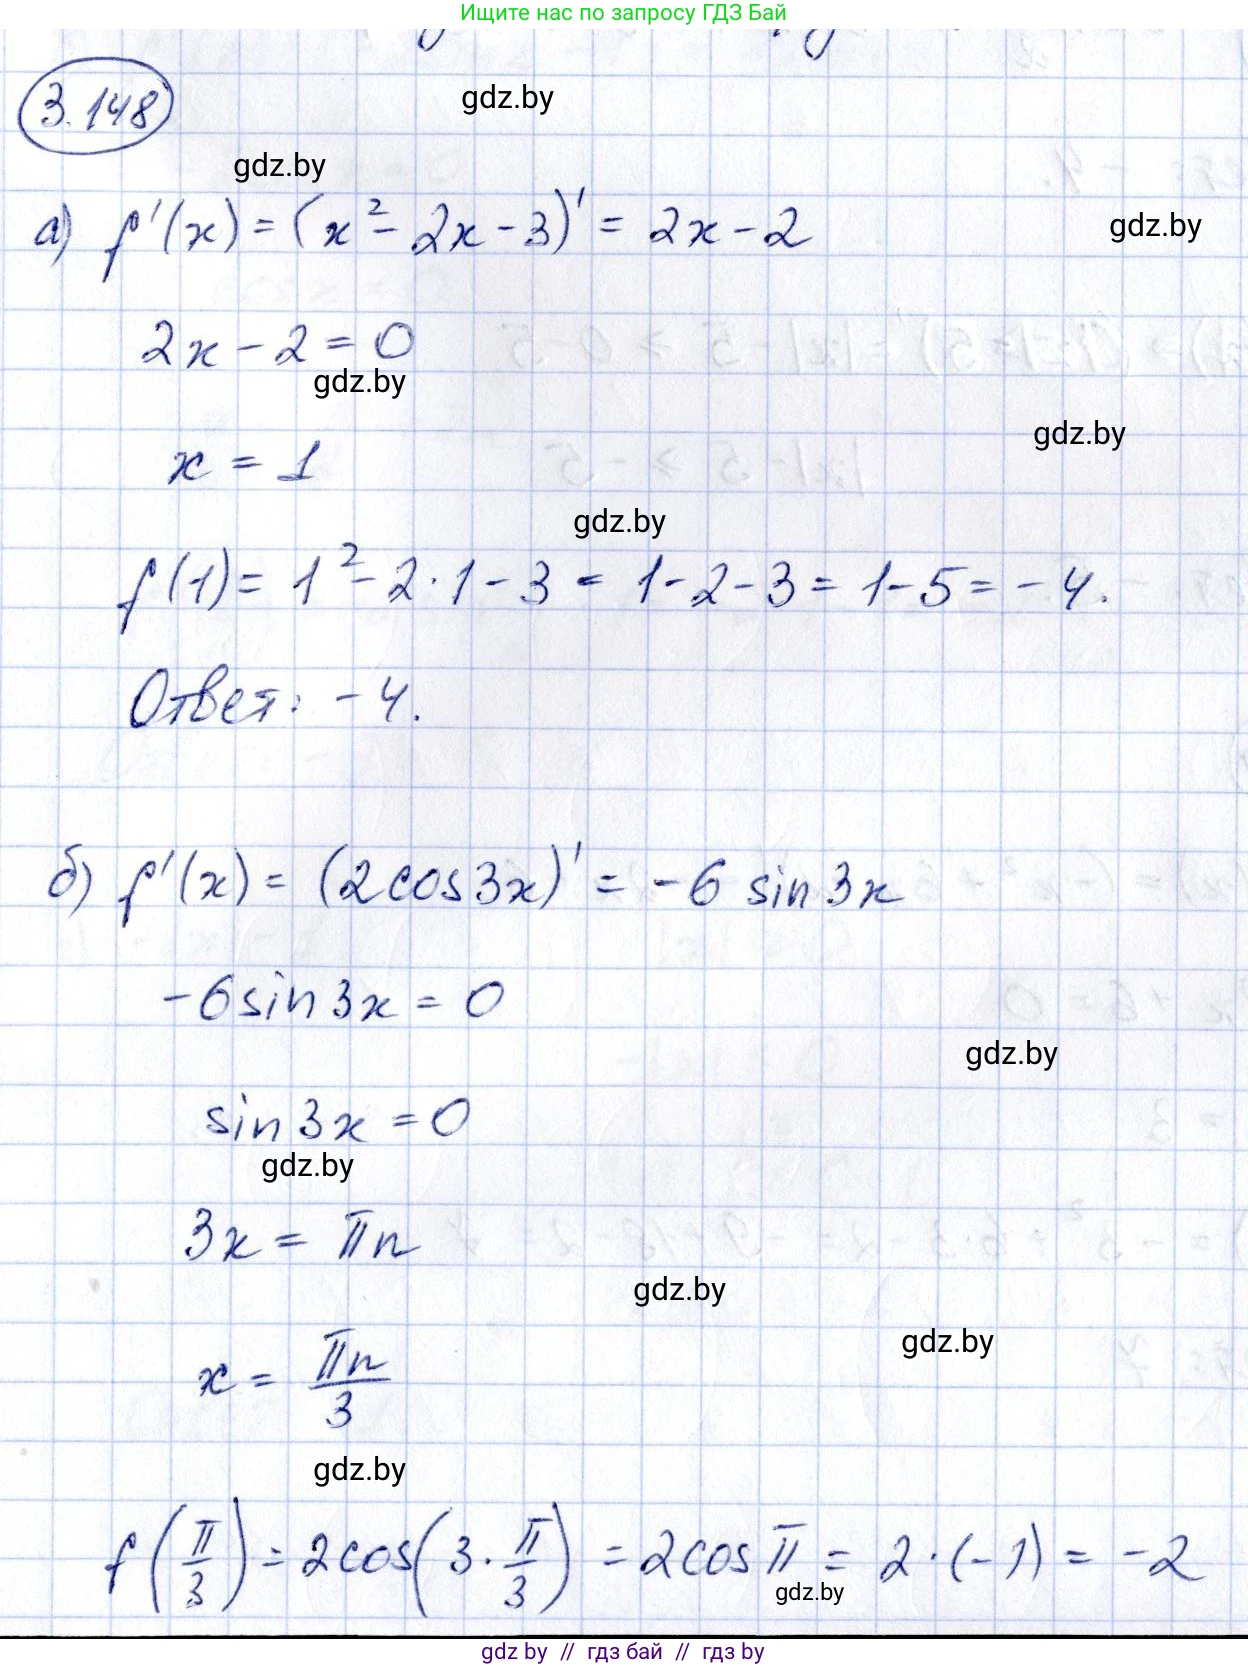 Ищите нас по запросу ГДЗ Бай
3.148
gdz.by
gdz.by
а) f'(x) = (x² - 2x - 3)' = 2x - 2
gdz.by
2x - 2 = 0
gdz.by
gdz.by
x = 1
gdz.by
f(1) = 1² - 2 · 1 - 3 = 1 - 2 - 3 = 1 - 5 = -4.
Ответ: -4.
б) f'(x) = (2cos3x)' = -6 sin3x
-6sin3x = 0
gdz.by
sin3x = 0
gdz.by
3x = πn
gdz.by
gdz.by
x = πn/3
gdz.by
f(π/3) = 2cos(3 · π/3) = 2cosπ = 2 · (-1) = -2
gdz.by
gdz by // гдз бай // гдз by